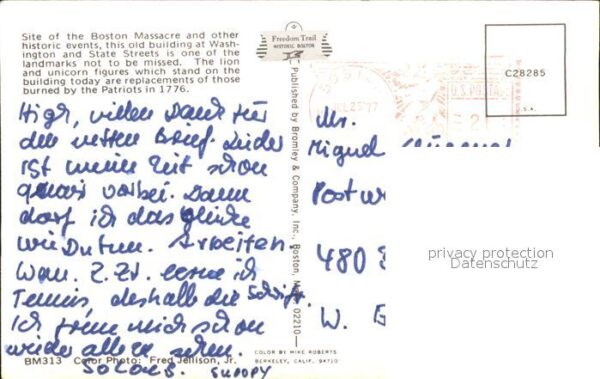 Site of the Boston Massacre and other
historic events, this old building at Wash-
ington and State Streets is one of the
landmarks not to be missed. The lion
and unicorn figures which stand on the
building today are replacements of those
burned by the Patriots in 1776.
vielen Dank für
den netten Brief. Leider
ist meine Zeit schon
vorbei. Dann
darf ich das gleiche
wie Du tun. Arbeiten.
z. Zt. lerne ich
Tennis, deshalb die Schrift.
Ich freue mich schon
wieder alle zu sehen.
BM313 Color Photo: Fred Jellison, Jr.
SNOOPY
Freedom Trail
HISTORIC BOSTON
Published by Bromley & Company, Inc., Boston, Mass. 02210
COLOR BY MIKE ROBERTS
BERKELEY, CALIF. 94710
JUL 25 '77
U.S. POSTAGE
C28285
U.S.A.
Mr.
Miguel
Postw
480
W.
privacy protection
Datenschutz